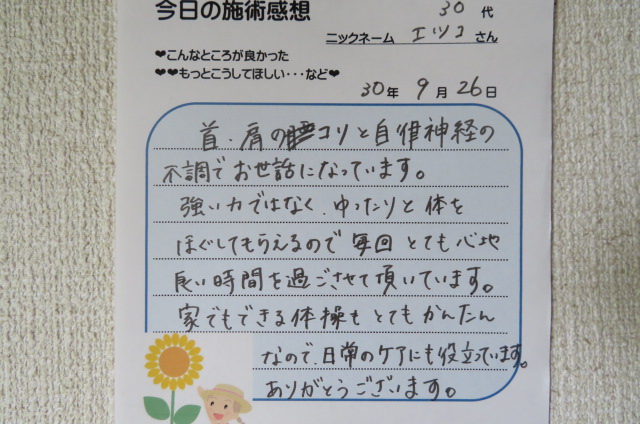 今日の施術感想
30代
ニックネーム エツコ さん
❤こんなところが良かった
❤❤もっとこうしてほしい・・・など❤
30年 9月 26日
首、肩のコリと自律神経の
不調でお世話になっています。
強い力ではなく、ゆったりと体を
ほぐしてもらえるので毎回とても心地
良い時間を過ごさせて頂いています。
家でもできる体操もとてもかんたん
なので、日常のケアにも役立っています。
ありがとうございます。